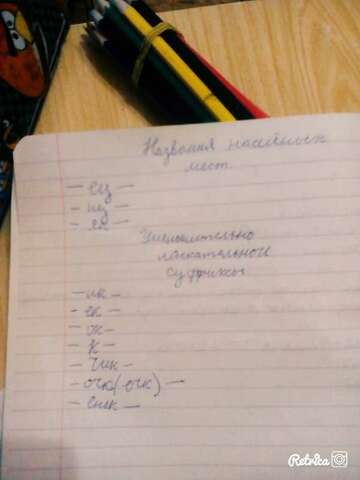 Названия населённых
мест
— ец —
— нец —
— ея —
Уменшительно
ласкательной
суффиксы
— ик —
— ек —
— ок —
— к —
— чик —
— очк (ечк) —
— еньк —
Retrica